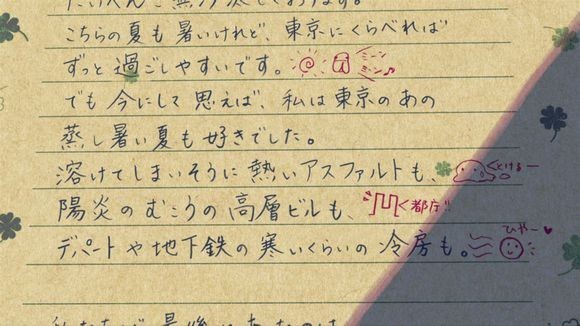 こちらの夏も暑いけれど、東京にくらべれば
ずっと過ごしやすいです。 ミーン ミーン♪
でも今にして思えば、私は東京のあの
蒸し暑い夏も好きでした。
溶けてしまいそうに熱いアスファルトも、 とけるー
陽炎のむこうの高層ビルも、 都庁!!
デパートや地下鉄の寒いくらいの冷房も。 ひやー♥